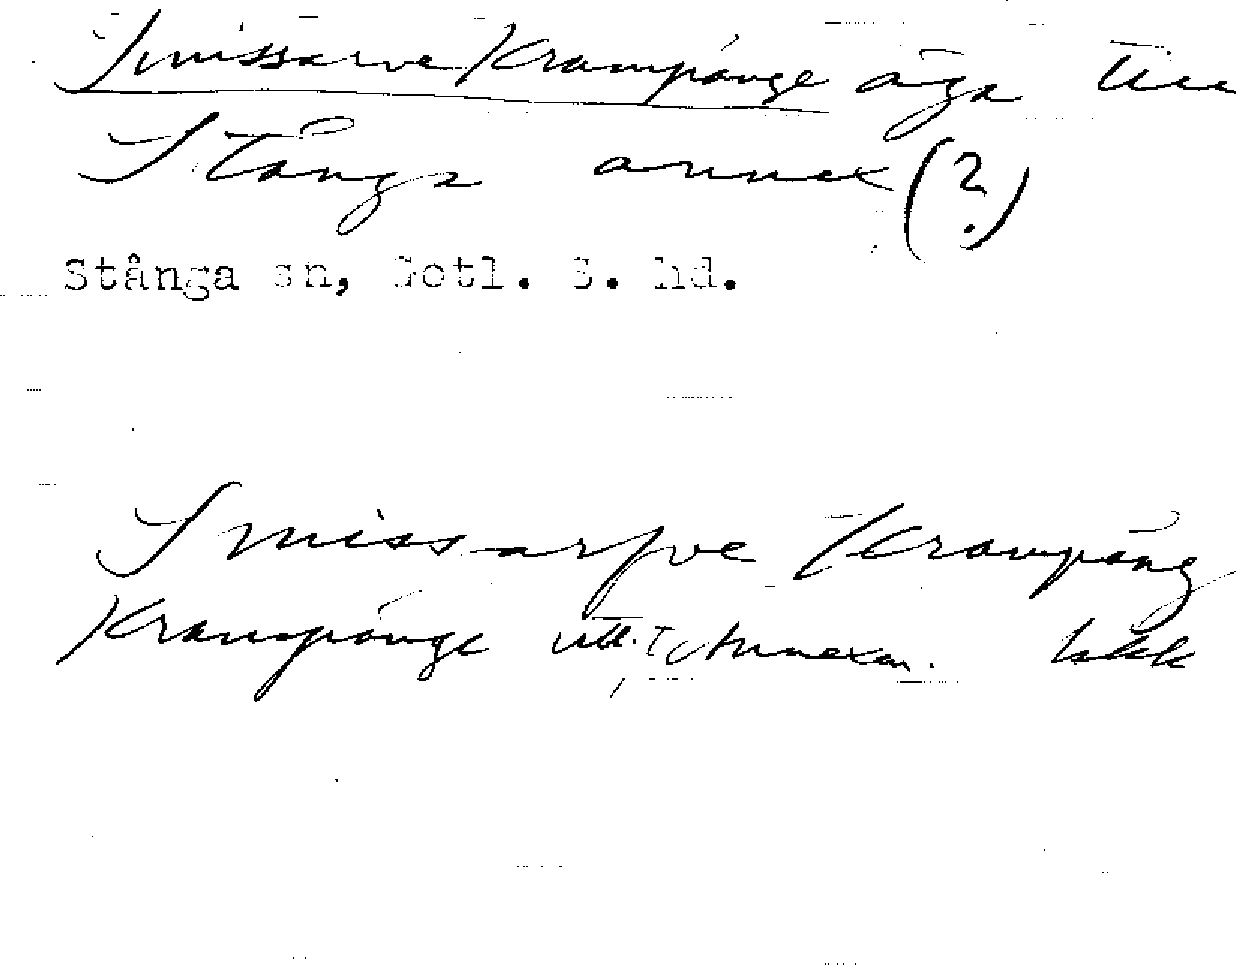 Smissarve Krampänge äga till
Stånga annex (?)
Stånga sn, Gotl. S. hd.
Smissarfve Krampäng
Krampänge till Annexen.